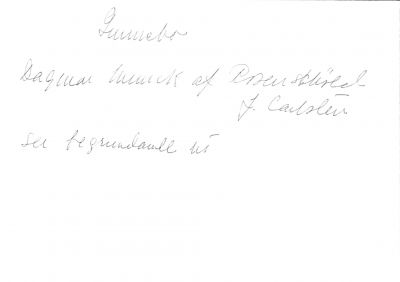 Gunnebo
Dagmar Munck af Rosenschöld
J. Carlsten
ser begrundande ut